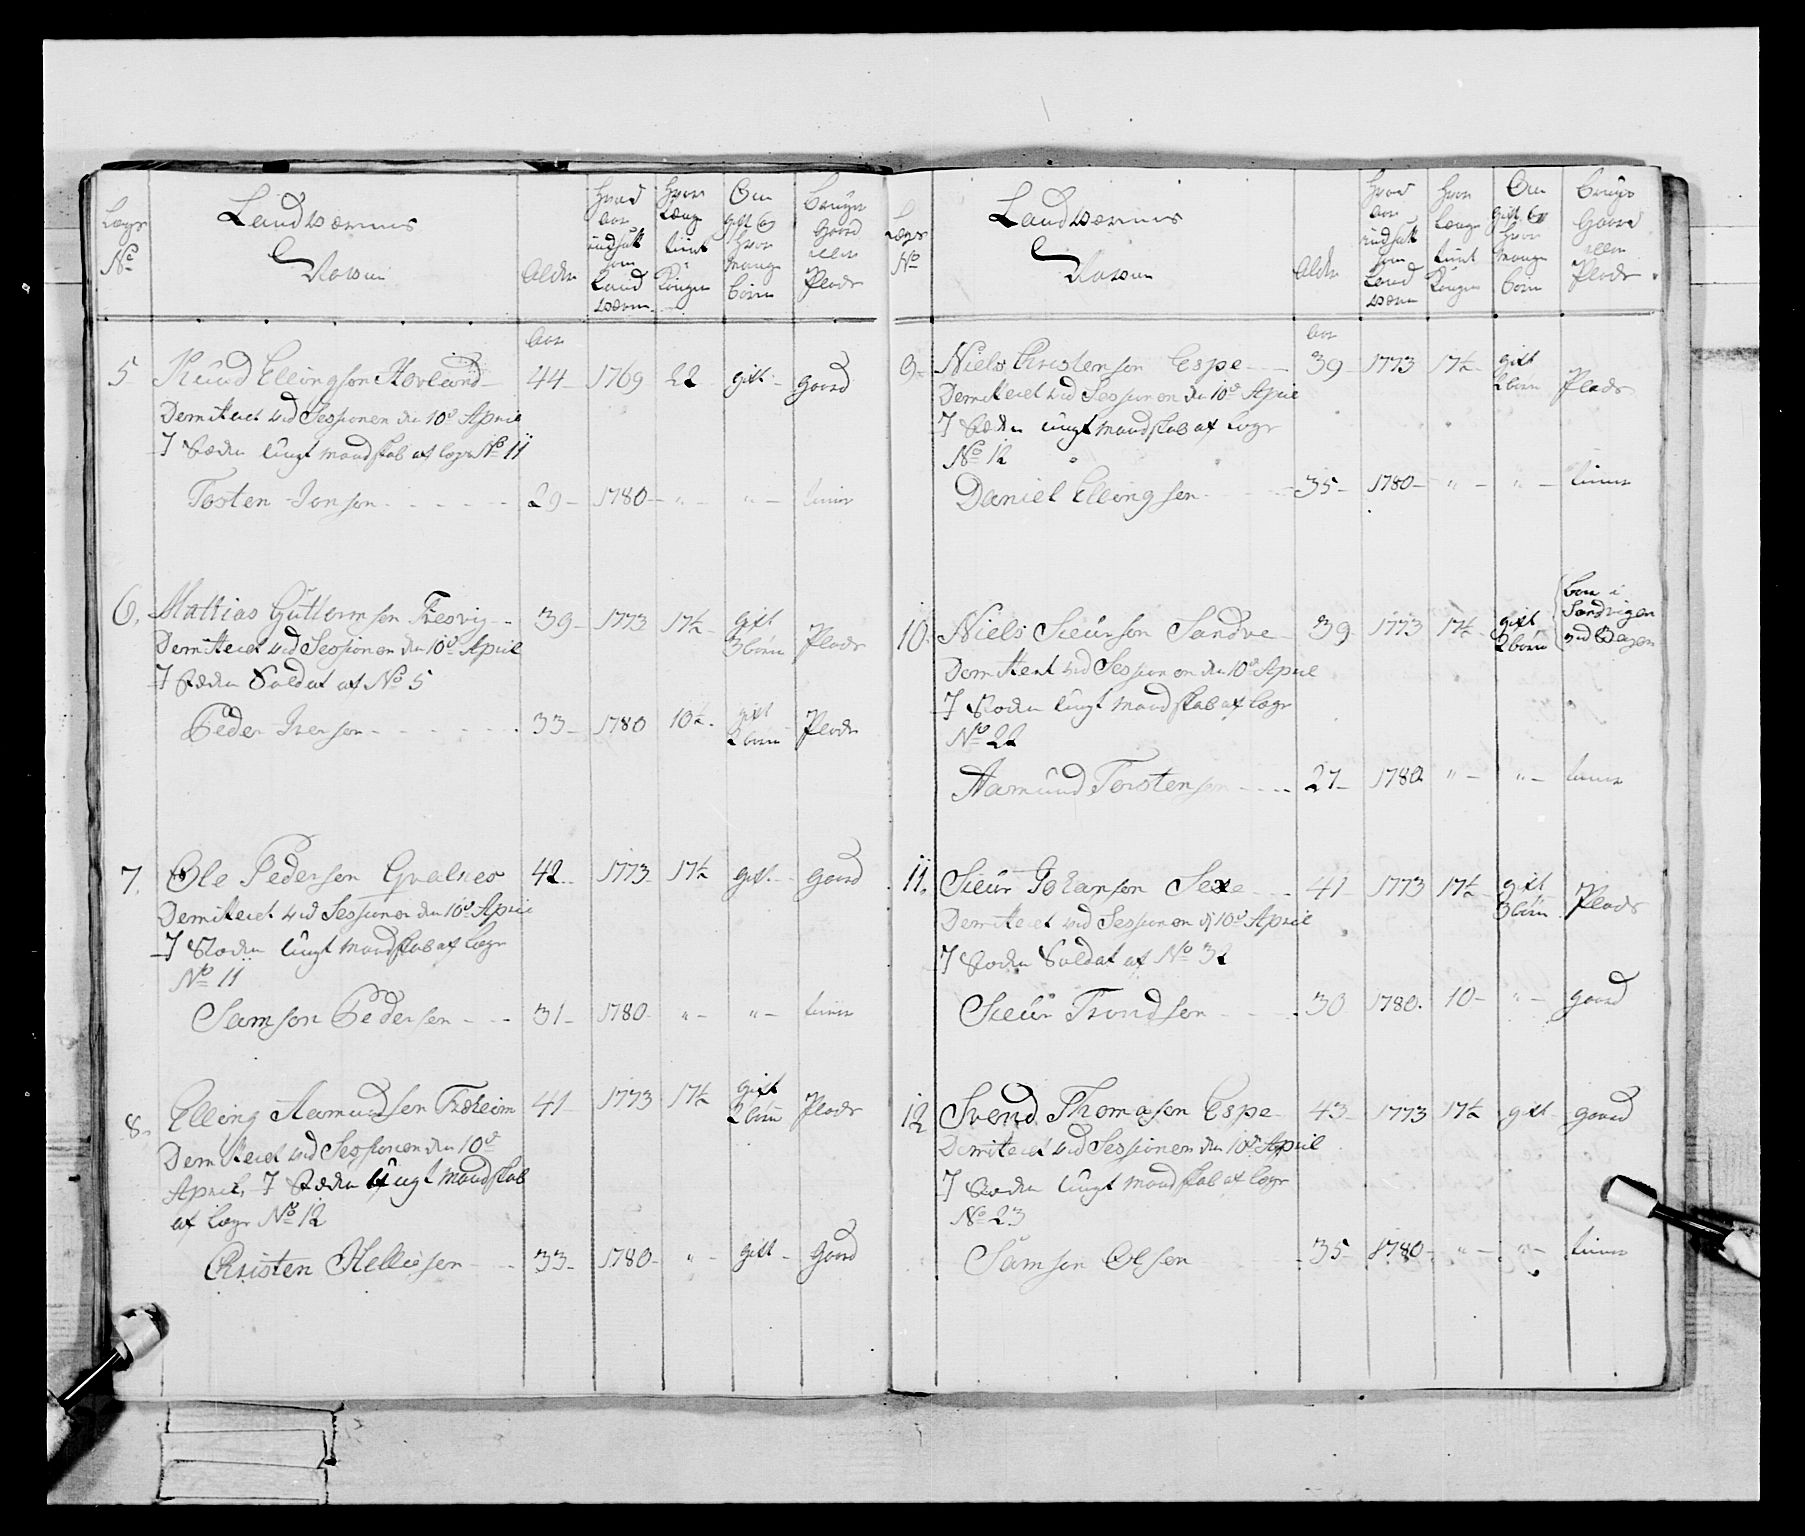 Lægs No
Landværns Navne
Alder
Hvad Aar indsatt som Land værn
Hvor Længe tient Kongen
Om gift og Hvor Mange børn
Bruger Gaard eller Plads
Aar
5 Knud Ellingson Hovland 44 1769 22 gift gaard
Demitteret ved Sessionen den 10de April
I Stæden ungt Mandskab af Lægs No 11
Tosten Jonson 29 1780 " " tiener
6. Mattias Guttormsen Tresvig 39 1773 17½ gift 3 børn Plads
Demitteret ved Sessionen den 10de April
I Stæden Soldat af No 5
Peder Iversen 33 1780 10½ gift 2 børn Plads
7. Ole Pedersen Qvalnes 42 1773 17½ gift gaard
Demitteret ved Sessionen den 10de April
I Stæden ungt Mandskab af Lægs
No 11
Samson Pedersen 31 1780 " " tiener
8. Elling Aamundsen Trøheim 41 1773 17½ gift 2 børn Plads
Demitteret ved Sessionen den 10de
April, I Stæden ungt Mandskab
af Lægs No 12
Christen Hellesen 33 1780 " gift Gaard
Lægs No
Landværns Navne
Alder
Hvad Aar indsatt som Land værn
Hvor Længe tient Kongen
Om gift og Hvor Mange børn
Bruger Gaard eller Plads
Aar
9. Niels Christensen Espe 39 1773 17½ gift 2 børn Plads
Demitteret ved Sessionen den 10de April
I Stæden ungt Mandskab af Lægs
No 12
Daniel Ellingsen 35 1780 " " tiener
10. Niels Siursson Sandve 39 1773 17½ gift 2 børn boer i Sandvigen ved Bergen
Demitteret ved Sessionen den 10de April
I Stæden ungt Mandskab af Lægs
No 22
Aamund Torstensen 27 1780 " " tiener
11. Siur Johansen Sexe 41 1773 17½ gift 3 børn Plads
Demitteret ved Sessionen d 10de April
I Stæden Soldat af No 32
Siur Trondsen 30 1780. 10 " gaard
12 Svend Thomasen Espe 43 1773 17½ gift gaard
Demitteret ved Sessionen den 10de April
I Stæden ungt Mandskab af Lægs
No 23
Samson Olsen 35 1780 " " tiener